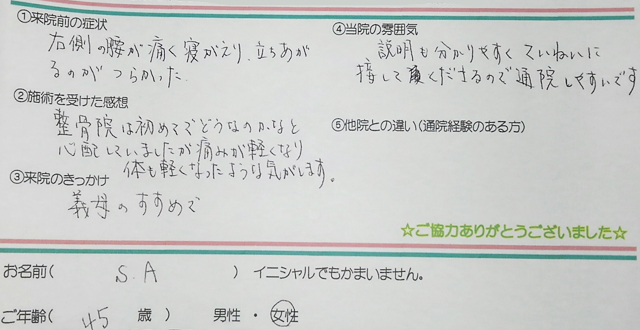 ①来院前の症状
右側の腰が痛く寝がえり、立ちあが
るのがつらかった
②施術を受けた感想
整骨院は初めてでどうなのかなと
心配していましたが痛みが軽くなり
体も軽くなったような気がします。
③来院のきっかけ
義母のすすめで
④当院の雰囲気
説明も分かりやすくていねいに
接して頂くださるので通院しやすいです
⑤他院との違い(通院経験のある方)
☆ご協力ありがとうございました☆
お名前( S.A ) イニシャルでもかまいません。
ご年齢( 45 歳 ) 男性 ・ 女性